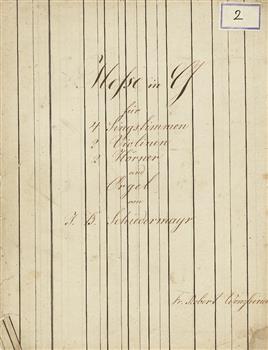 2
Messe in G
für
4 Singstimmen
2 Violinen
2 Hörner
und
Orgel
von
J. B. Schiedermayr
Fr. Robert